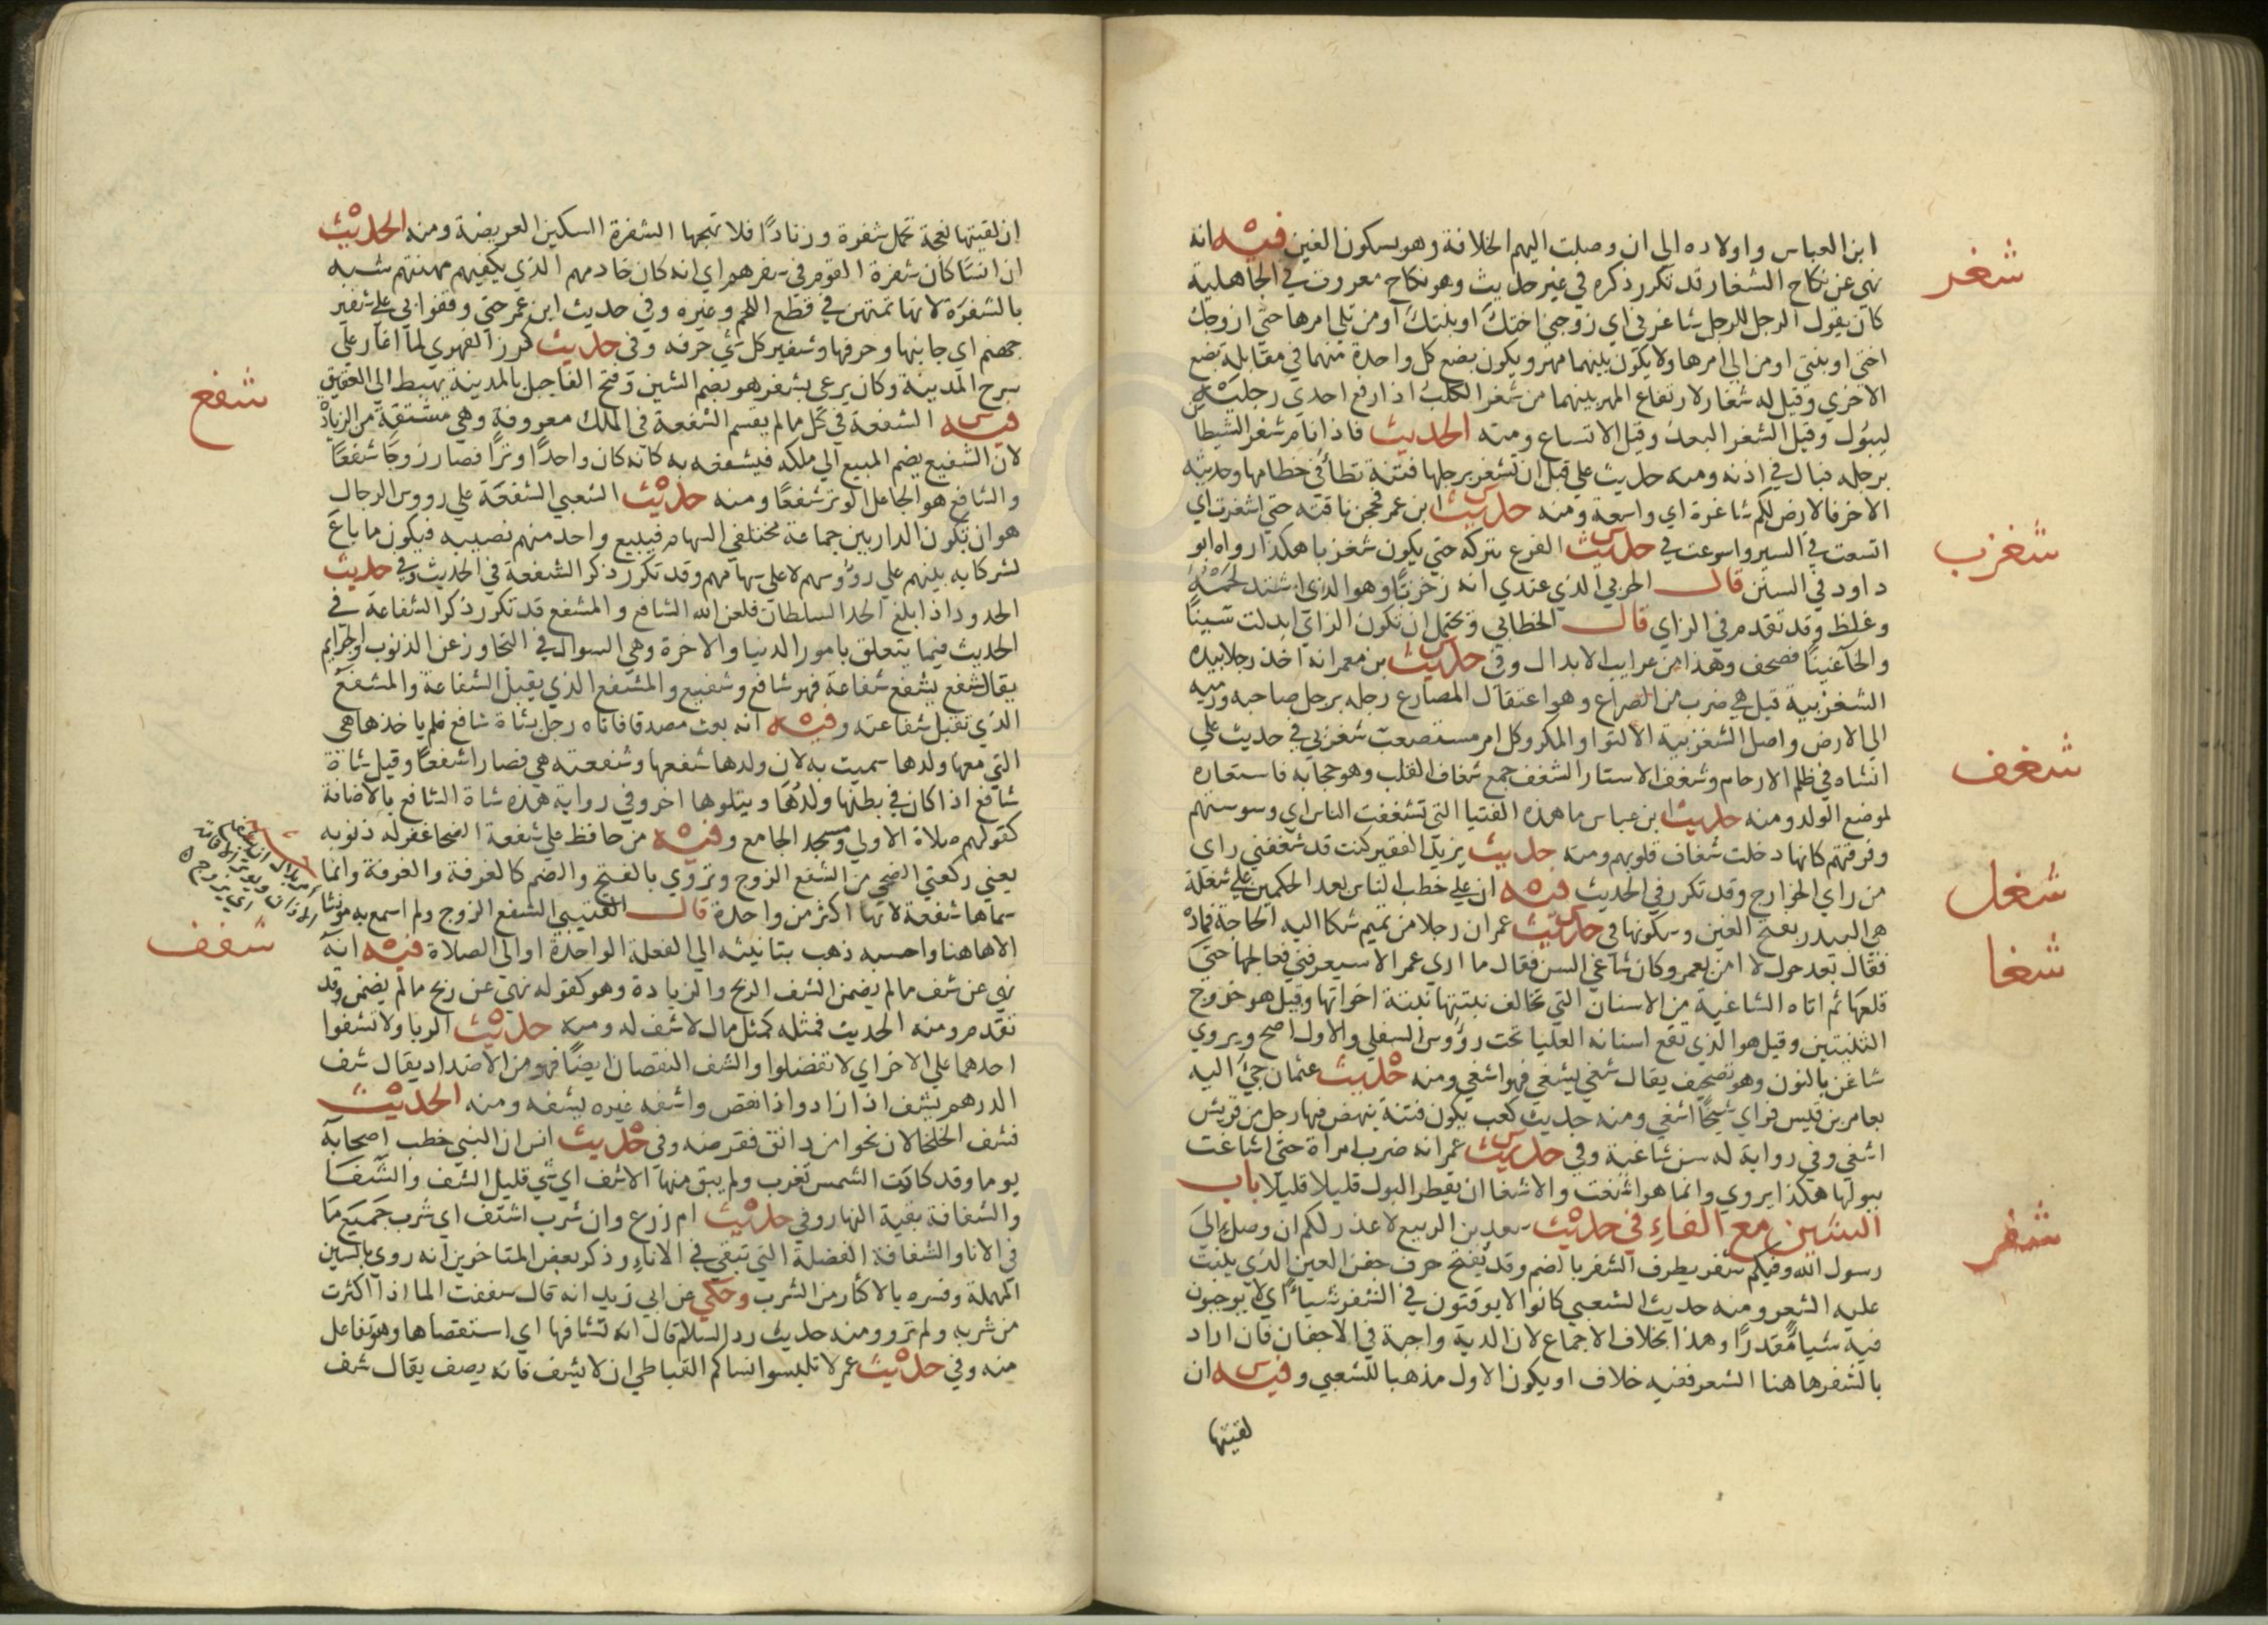 ابن العباس واولاده الى ان وصلت اليهم الخلافة وهو بسكون الغين فيه انه
شغر
نهى عن نكاح الشغار قد تكرر ذكره في غير حديث وهو نكاح معروف في الجاهلية
كان يقول الرجل للرجل شاغرني اي زوجني اختك او بنتك او من تلي امرها حتى ازوجك
اختي او بنتي او من الي امرها ولا يكون بينهما مهر ويكون بضع كل واحدة منهما في مقابلة بضع
الاخري وقيل له شغار لارتفاع المهر بينهما من شغر الكلب اذا رفع احدي رجليه
ليبول وقيل الشغر البعد وقيل الاتساع ومنه الحديث فاذا نام شغر الشيطان
برجله فبال في اذنه ومنه حديث علي قبل ان تشغر برجلها فتنة تطأ في خطامها وحديثه
الاخر فالارض لكم شاغرة اي واسعة ومنه حديث ابن عمر فحجن ناقته حتي اشغرت اي
شغزب
اتسعت في السير واسرعت في حديث الفرع تتركه حتي يكون شغزبا هكذا رواه ابو
داود في السنن قال الحربي الذي عندي انه زخزبا وهو الذي اشتد لحمه
وغلظ وقد تقدم في الزاي قال الخطابي ويحتمل ان تكون الزاي ابدلت شينا
والخا غينا فصحف وهذا من غرايب الابدال وفي حديث بن معمر انه اخذ رجلا بيده
الشغزبية قيل هي ضرب من الصراع وهو اعتقال المصارع رجله برجل صاحبه ورميه
الي الارض واصل الشغزبية الالتوا والمكر وكل امر مستصعب شغزبي في حديث علي
شغف
انشاه في ظلم الارحام وشغف الاستار الشغف جمع شغاف القلب وهو حجابه فاستعاره
لموضع الولد ومنه حديث ابن عباس ما هذه الفتيا التي تشغفت الناس اي وسوستهم
وفرقتهم كانها دخلت شغاف قلوبهم ومنه حديث يزيد الفقير كنت قد شغفني راي
من راي الخوارج وقد تكرر في الحديث فيه ان علي خطب الناس بعد الحكمين علي شغلة
شغل
هي البيدر بفتح الغين وسكونها في حديث عمر ان رجلا من تميم شكا اليه الحاجة فماره
شغا
فقال بعد حول لا لمن بعمر وكان شاغي السن فقال ما اري عمر الا سيعرفني فعالجها حتي
قلعها ثم اتاه الشاغية من الاسنان التي تخالف نبتتها نبتة اخواتها وقيل هو خروج
الثنيتين وقيل هو الذي تقع اسنانه العليا تحت رؤوس السفلي والاول اصح ويروي
شاغن بالنون وهو تصحيف يقال شغي يشغي فهو اشغي ومنه حديث عثمان جئ اليه
بعامر بن قيس فراي شيخا اشغي ومنه حديث كعب يكون فتنة ينهض فيها رجل من قريش
اشغي وفي رواية له سن شاغية وفي حديث عمر انه ضرب امراة حتي اشاغت
ببولها هكذا يروي وانما هو اشغت والاشغا ان يقطر البول قليلا قليلا باب
الشين مع الفاء في حديث سعد بن الربيع لا عذر لكم ان وصل الى
شفر
رسول الله وفيكم شفر يطرف الشفر بالضم وقد يفتح حرف جفن العين الذي ينبت
عليه الشعر ومنه حديث الشعبي كانوا لا يوقتون في الشفر شيأ اي لا يوجبون
فيه شيا مقدرا وهذا بخلاف الاجماع لان الدية واجبة في الاجفان فان اراد
بالشفر هاهنا الشعر ففيه خلاف او يكون الاول مذهبا للشعبي وفيه ان
لقيتها
ان لقيتها نعجة تحمل شفرة وزنادا فلا تهجها الشفرة السكين العريضة ومنه الحديث
ان انسا كان شفرة القوم في سفرهم اي انه كان خادمهم الذي يكفيهم مهنتهم شبه
بالشفرة لانها تمتهن في قطع اللحم وغيره وفي حديث ابن عمر حتي وقفوا بي علي شفير
جهنم اي جانبها وحرفها وشفير كل شئ حرفه وفي حديث كرز الفهري لما اغار علي
سرح المدينة وكان يرعي بشفر هو بضم الشين وفتح الفا جبل بالمدينة يهبط الي العقيق
شفع
فيه الشفعة في كل ما لم يقسم الشفعة في الملك معروفة وهي مشتقة من الزيادة
لان الشفيع يضم المبيع الي ملكه فيشفعه به كانه كان واحدا وترا فصار زوجا شفعا
والشافع هو الجاعل الوتر شفعا ومنه حديث الشعبي الشفعة علي رووس الرجال
هو ان تكون الدار بين جماعة مختلفي السهام فيبيع واحد منهم نصيبه فيكون ما باع
لشركايه بينهم علي رؤوسهم لا علي سهامهم وقد تكرر ذكر الشفعة في الحديث وفي حديث
الحدود اذا بلغ الحد السلطان فلعن الله الشافع والمشفع قد تكرر ذكر الشفاعة في
الحديث فيما يتعلق بامور الدنيا والاخرة وهي السوال في التجاوز عن الذنوب والجرايم
يقال شفع يشفع شفاعة فهو شافع وشفيع والمشفع الذي يقبل الشفاعة والمشفع
الذي تقبل شفاعته وفيه انه بعث مصدقا فاتاه رجل بشاة شافع فلم ياخذها هي
التي معها ولدها سميت به لان ولدها شفعها وشفعته هي فصارا شفعا وقيل شاة
شافع اذا كان في بطنها ولدها ويتلوها اخر وفي رواية هذه شاة الشافع بالاضافة
كقولهم صلاة الاولي ومسجد الجامع وفيه من حافظ علي شفعة الضحا غفر له ذنوبه
يعني ركعتي الضحي من الشفع الزوج وتروي بالفتح والضم كالغرفة والغرفة وانما
سماها شفعة لانها اكثر من واحدة قال القتيبي الشفع الزوج ولم اسمع به مونثا
الا هاهنا واحسبه ذهب بتانيثه الي الفعلة الواحدة او الي الصلاة فيه انه
شفف
نهى عن شف ما لم يضمن الشف الربح والزيادة وهو كقوله نهي عن ربح ما لم يضمن وقد
تقدم ومنه الحديث فمثله كمثل مال لا شف له ومنه حديث الربا ولا تشفوا
احدهما علي الاخر اي لا تفضلوا والشف النقصان ايضا فهو من الاضداد يقال شف
الدرهم يشف اذا زاد واذا نقص واشفه غيره يشفه ومنه الحديث
فشف الخلخالان نحوا من دانق فقرضه وفي حديث انس ان النبي خطب اصحابه
يوما وقد كادت الشمس تغرب ولم يبق منها الا شف اي شي قليل الشف والشفا
والشفافة بقية النهار وفي حديث ام زرع وان شرب اشتف اي شرب جميع ما
في الانا والشفافة الفضلة التي تبقي في الاناء وذكر بعض المتاخرين انه روي بالسين
المهملة وفسره بالاكثار من الشرب وحكي عن ابي زيد انه قال سففت الما اذا اكثرت
من شربه ولم ترو ومنه حديث رد السلام قال انه تشافها اي استقصاها وهو تفاعل
منه وفي حديث عمر لا تلبسوا نساكم القباطي ان لا يشف فانه يصف يقال شف